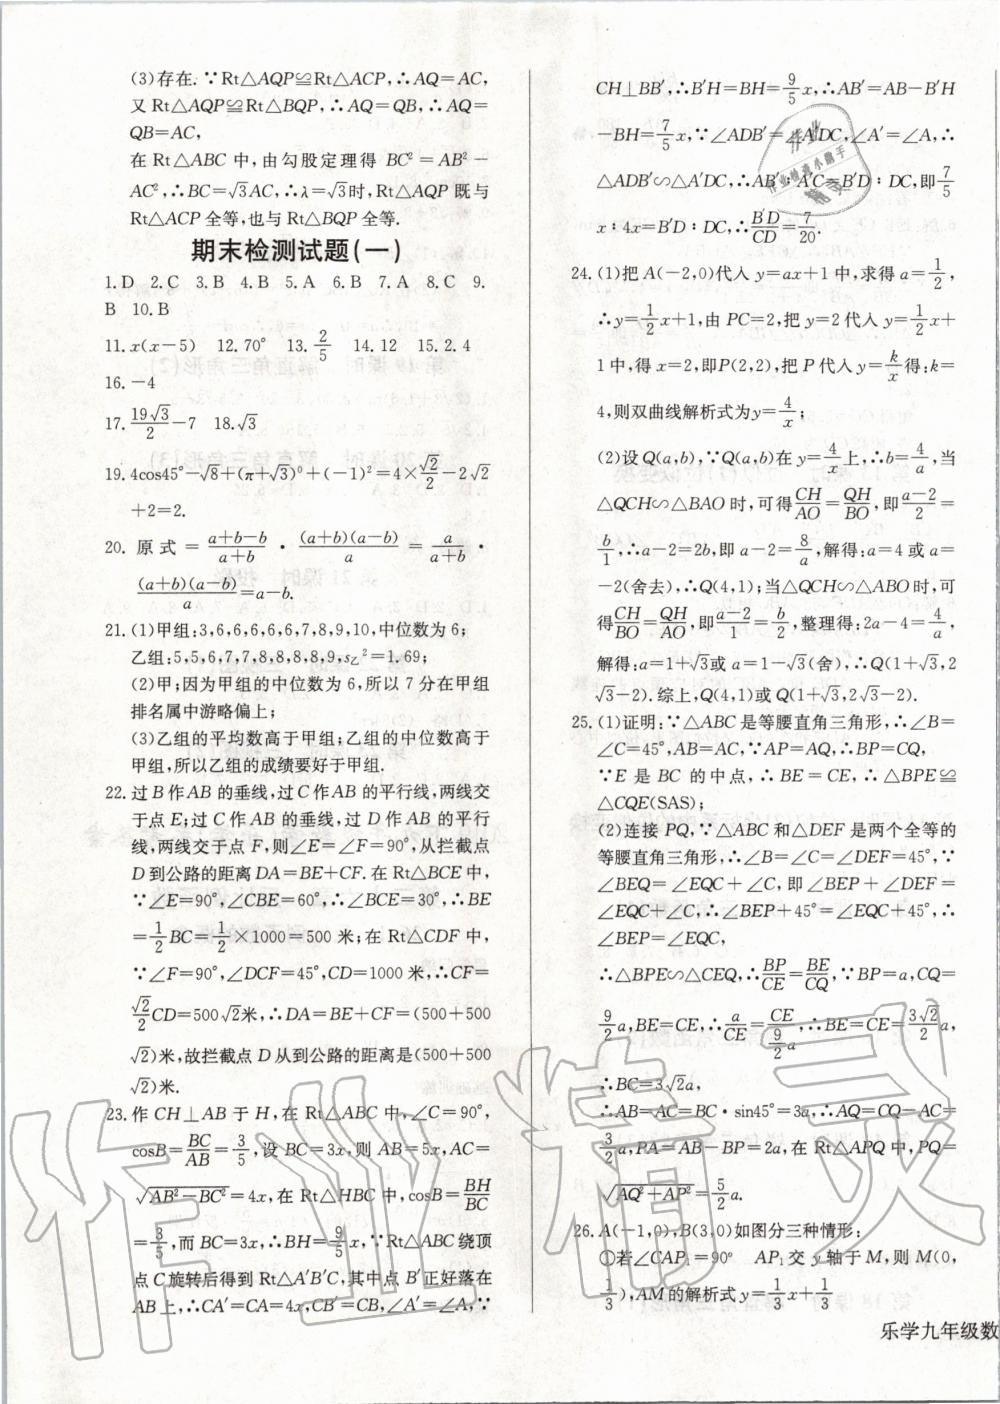 (3)存在.∵Rt△AQP≌Rt△ACP,∴AQ=AC,
又Rt△AQP≌Rt△BQP,∴AQ=QB,∴AQ=
QB=AC,
在Rt△ABC中,由勾股定理得BC²=AB²-
AC²,∴BC=√3AC,∴λ=√3时,Rt△AQP既与
Rt△ACP全等,也与Rt△BQP全等.
期末检测试题(一)
1.D 2.C 3.B 4.B 5.A 6.B 7.A 8.C 9.
B 10.B
11.x(x-5) 12.70° 13.2/5 14.12 15.2.4
16.-4
17.19√3/2-7 18.√3
19.4cos45°-√8+(π+√3)⁰+(-1)²=4×√2/2-2√2
+2=2.
20.原式=(a+b-b)/(a+b)·(a+b)(a-b)/a=a/(a+b)·
(a+b)(a-b)/a=a-b.
21.(1)甲组:3,6,6,6,6,6,7,8,9,10,中位数为6;
乙组:5,5,6,7,7,8,8,8,8,9,s乙²=1.69;
(2)甲;因为甲组的中位数为6,所以7分在甲组
排名属中游略偏上;
(3)乙组的平均数高于甲组;乙组的中位数高于
甲组,所以乙组的成绩要好于甲组.
22.过B作AB的垂线,过C作AB的平行线,两线交
于点E;过C作AB的垂线,过D作AB的平行
线,两线交于点F,则∠E=∠F=90°,从拦截点
D到公路的距离DA=BE+CF.在Rt△BCE中,
∵∠E=90°,∠CBE=60°,∴∠BCE=30°,∴BE
=1/2BC=1/2×1000=500米;在Rt△CDF中,
∵∠F=90°,∠DCF=45°,CD=1000米,∴CF=
√2/2CD=500√2米,∴DA=BE+CF=(500+500
√2)米,故拦截点D从到公路的距离是(500+500
√2)米.
23.作CH⊥AB于H,在Rt△ABC中,∠C=90°,
cosB=BC/AB=3/5,设BC=3x,则AB=5x,AC=
√(AB²-BC²)=4x,在Rt△HBC中,cosB=BH/BC
=3/5,而BC=3x,∴BH=9/5x,∵Rt△ABC绕顶
点C旋转后得到Rt△A′B′C,其中点B′正好落在
AB上,∴CA′=CA=4x,CB′=CB,∠A′=∠A,∵
CH⊥BB′,∴B′H=BH=9/5x,∴AB′=AB-B′H
-BH=7/5x,∵∠ADB′=∠A′DC,∠A′=∠A,∴
△ADB′∽△A′DC,∴AB′∶A′C=B′D∶DC,即7/5
x∶4x=B′D∶DC,∴B′D/CD=7/20.
24.(1)把A(-2,0)代入y=ax+1中,求得a=1/2,
∴y=1/2x+1,由PC=2,把y=2代入y=1/2x+
1中,得x=2,即P(2,2),把P代入y=k/x得:k=
4,则双曲线解析式为y=4/x;
(2)设Q(a,b),∵Q(a,b)在y=4/x上,∴b=4/a,当
△QCH∽△BAO时,可得CH/AO=QH/BO,即(a-2)/2=
b/1,∴a-2=2b,即a-2=8/a,解得:a=4或a=
-2(舍去),∴Q(4,1);当△QCH∽△ABO时,可
得CH/BO=QH/AO,即(a-2)/1=b/2,整理得:2a-4=4/a,
解得:a=1+√3或a=1-√3(舍),∴Q(1+√3,2
√3-2).综上,Q(4,1)或Q(1+√3,2√3-2).
25.(1)证明:∵△ABC是等腰直角三角形,∴∠B=
∠C=45°,AB=AC,∵AP=AQ,∴BP=CQ,
∵E是BC的中点,∴BE=CE,∴△BPE≌
△CQE(SAS);
(2)连接PQ,∵△ABC和△DEF是两个全等的
等腰直角三角形,∴∠B=∠C=∠DEF=45°,∵
∠BEQ=∠EQC+∠C,即∠BEP+∠DEF=
∠EQC+∠C,∴∠BEP+45°=∠EQC+45°,∴
∠BEP=∠EQC,
∴△BPE∽△CEQ,∴BP/CE=BE/CQ,∵BP=a,CQ=
9/2a,BE=CE,∴a/CE=CE/(9/2a),∴BE=CE=3√2/2a,
∴BC=3√2a,
∴AB=AC=BC·sin45°=3a,∴AQ=CQ-AC=
3/2a,PA=AB-BP=2a,在Rt△APQ中,PQ=
√(AQ²+AP²)=5/2a.
26.A(-1,0),B(3,0)如图分三种情形:
①若∠CAP₁=90° AP₁交y轴于M,则M(0,
1/3),AM的解析式y=1/3x+1/3
乐学九年级数
作业精灵